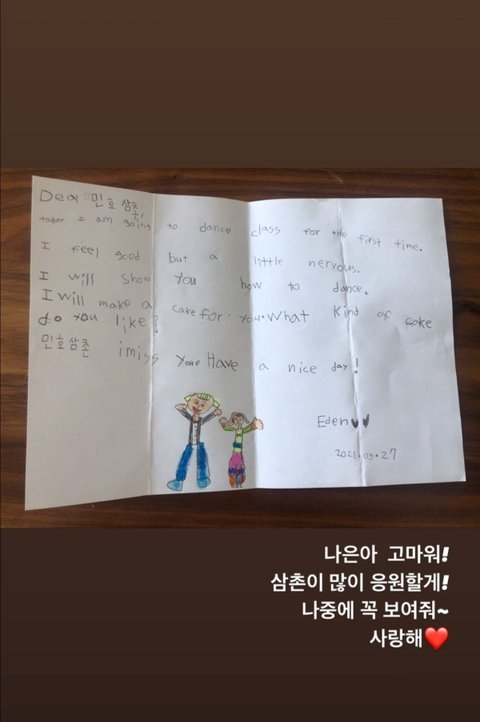 Dear 민호 삼촌
today I am going to dance class for the first time.
I feel good but a little nervous.
I will show you how to dance.
I will make a cake for you. What kind of cake
do you like?
민호삼촌 i miss you. Have a nice day!
Eden
2021.09.27
나은아 고마워!
삼촌이 많이 응원할게!
나중에 꼭 보여줘~
사랑해❤️